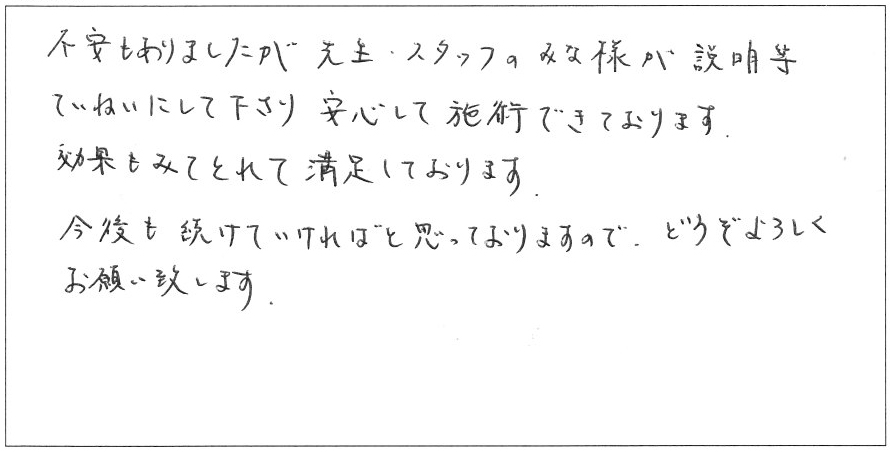 不安もありましたが 先生・スタッフのみな様が 説明等
ていねいにして下さり 安心して施術できております.
効果もみてとれて満足しております.
今後も続けていければと思っておりますので. どうぞよろしく
お願い致します.